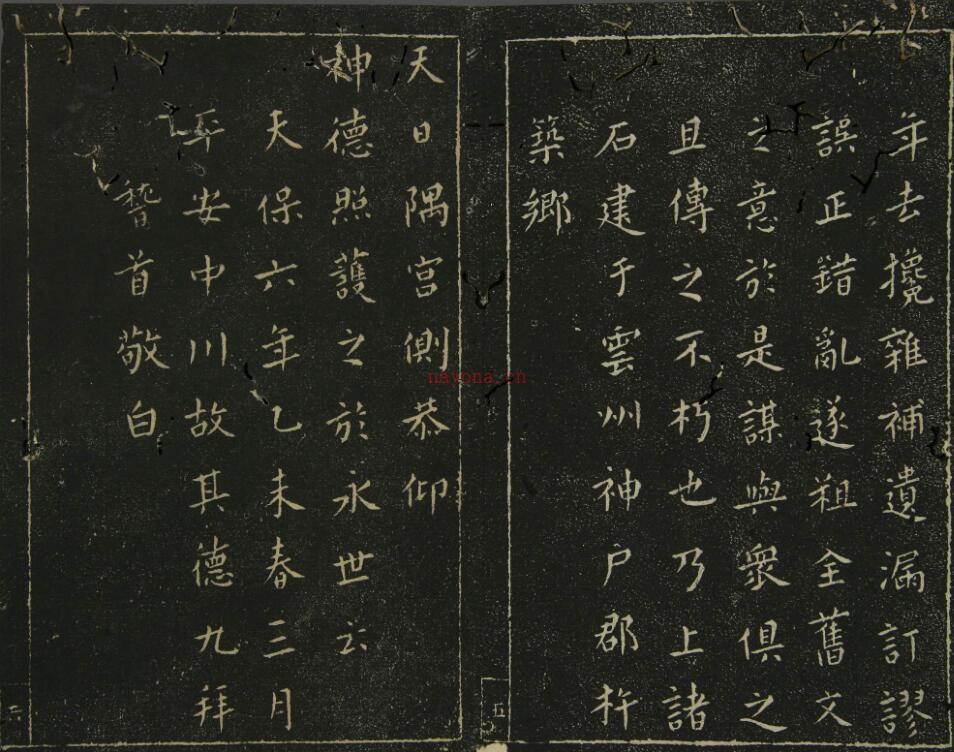 年去攙雜補遺漏訂謬
誤正錯亂遂粗全舊文
之意於是謀與衆俱之
且傳之不朽也乃上諸
石建于雲州神戶郡杵
築鄉
天日隅宮側恭仰
神德照護之於永世云
天保六年乙未春三月
平安中川故其德九拜
稽首敬白
五
六
nayona.cn